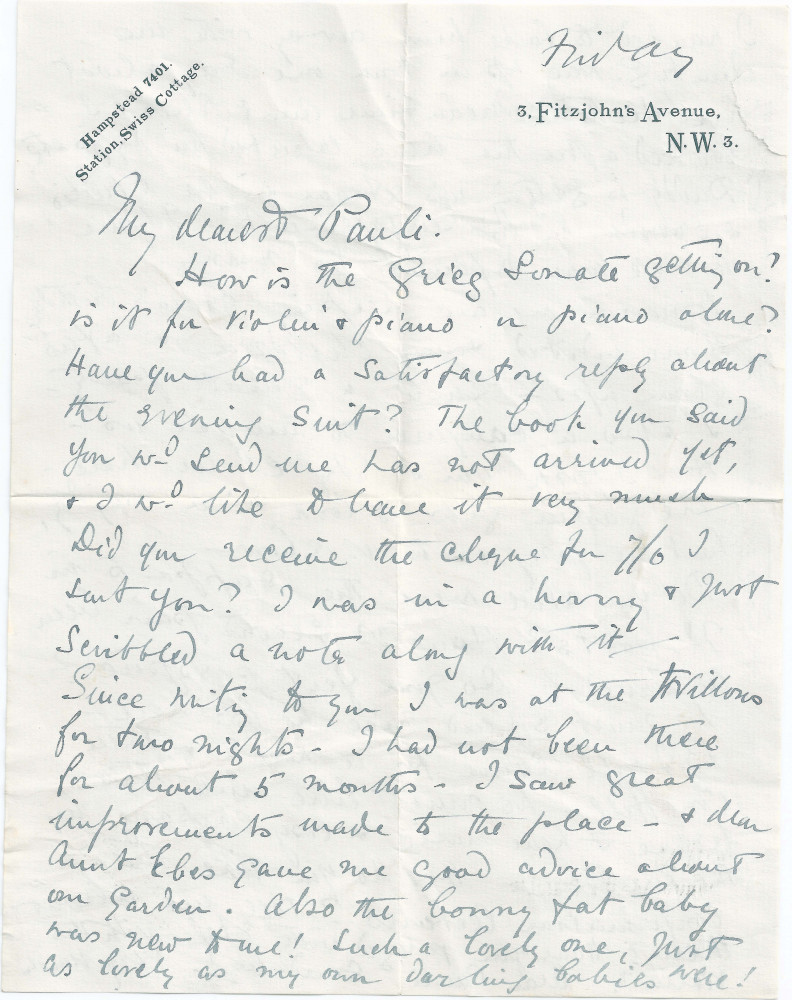 Friday
Hampstead 7401.
Station, Swiss Cottage.
3, Fitzjohn's Avenue,
N.W. 3.
My dearest Pauli.
How is the Grieg Sonate getting on?
is it for violin & piano or piano alone?
Have you had a satisfactory reply about
the evening suit? The book you said
you wd send me has not arrived yet,
& I wd like to have it very much -
Did you receive the cheque for 7/6 I
sent you? I was in a hurry & just
scribbled a note along with it -
Since writing to you I was at the Willows
for two nights - I had not been there
for about 5 months - I saw great
improvements made to the place - & dear
Aunt Ebes gave me good advice about
our garden. Also the bonny fat baby
was new to me! Such a lovely one, just
as lovely as my own darling babies were!